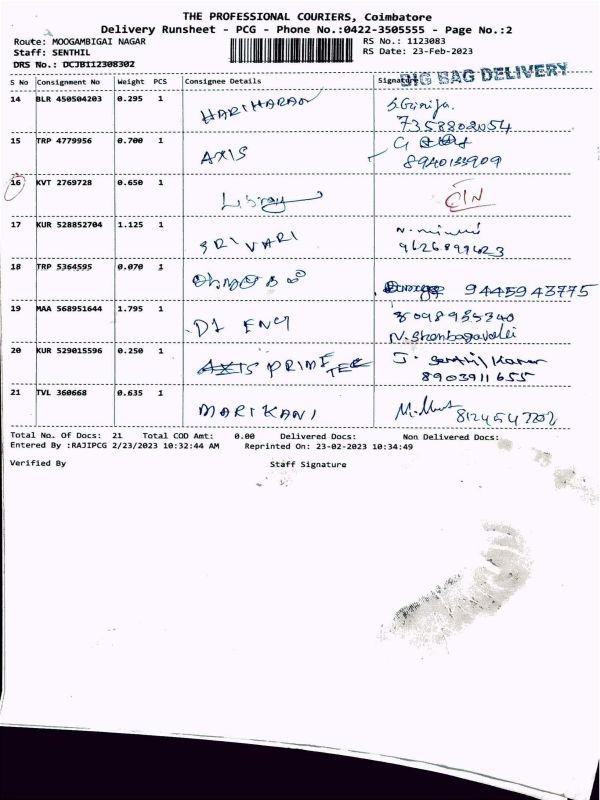 THE PROFESSIONAL COURIERS, Coimbatore
Delivery Runsheet - PCG - Phone No.:0422-3505555 - Page No.:2
Route: MOOGAMBIGAI NAGAR
RS No.: 1123083
Staff: SENTHIL
RS Date: 23-Feb-2023
DRS No.: DCJB112308302
BIG BAG DELIVERY
S No Consignment No Weight PCS Consignee Details Signature
14 BLR 450504203 0.295 1 HARIHARAN S. Girija.
7358802054
15 TRP 4779956 0.700 1 AXIS
8940133909
16 KVT 2769728 0.650 1 Library
17 KUR 528852704 1.125 1 SRI VARI
9626899623
18 TRP 5364595 0.070 1 9445943775
19 MAA 568951644 1.795 1 D1 ENG
N. Shanbagavalli
20 KUR 529015596 0.250 1 AXIS PRIME TEC J. Senthil Kumar
8903911655
21 TVL 360668 0.635 1 MARIKANI
Total No. Of Docs: 21 Total COD Amt: 0.00 Delivered Docs: Non Delivered Docs:
Entered By :RAJIPCG 2/23/2023 10:32:44 AM Reprinted On: 23-02-2023 10:34:49
Verified By Staff Signature